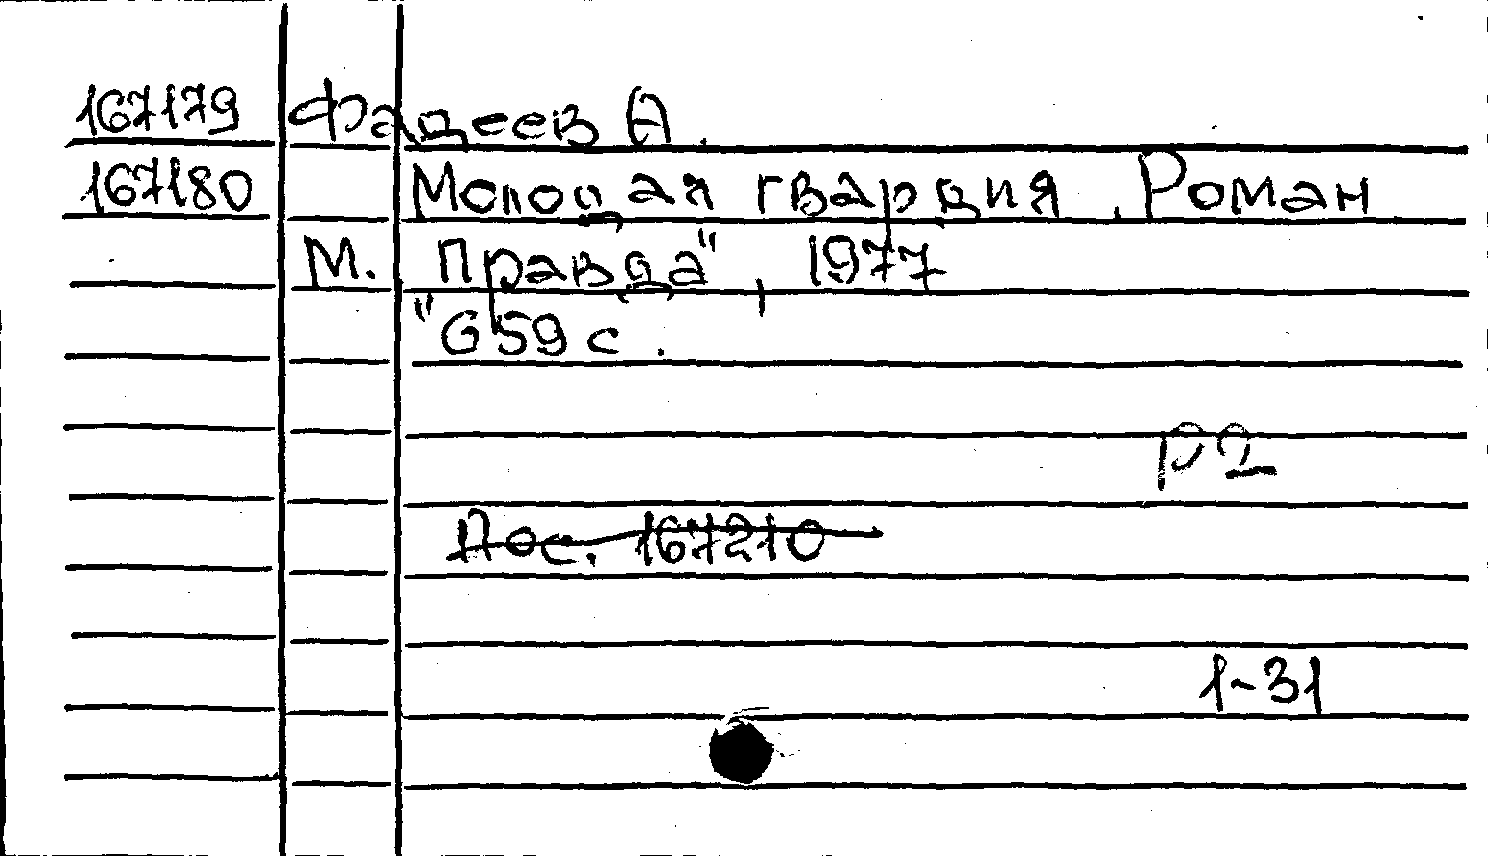 167179 Фадеев А.
167180 Молодая гвардия. Роман
М. "Правда", 1977
659 с.
Р2
Пос. 167210
1-31